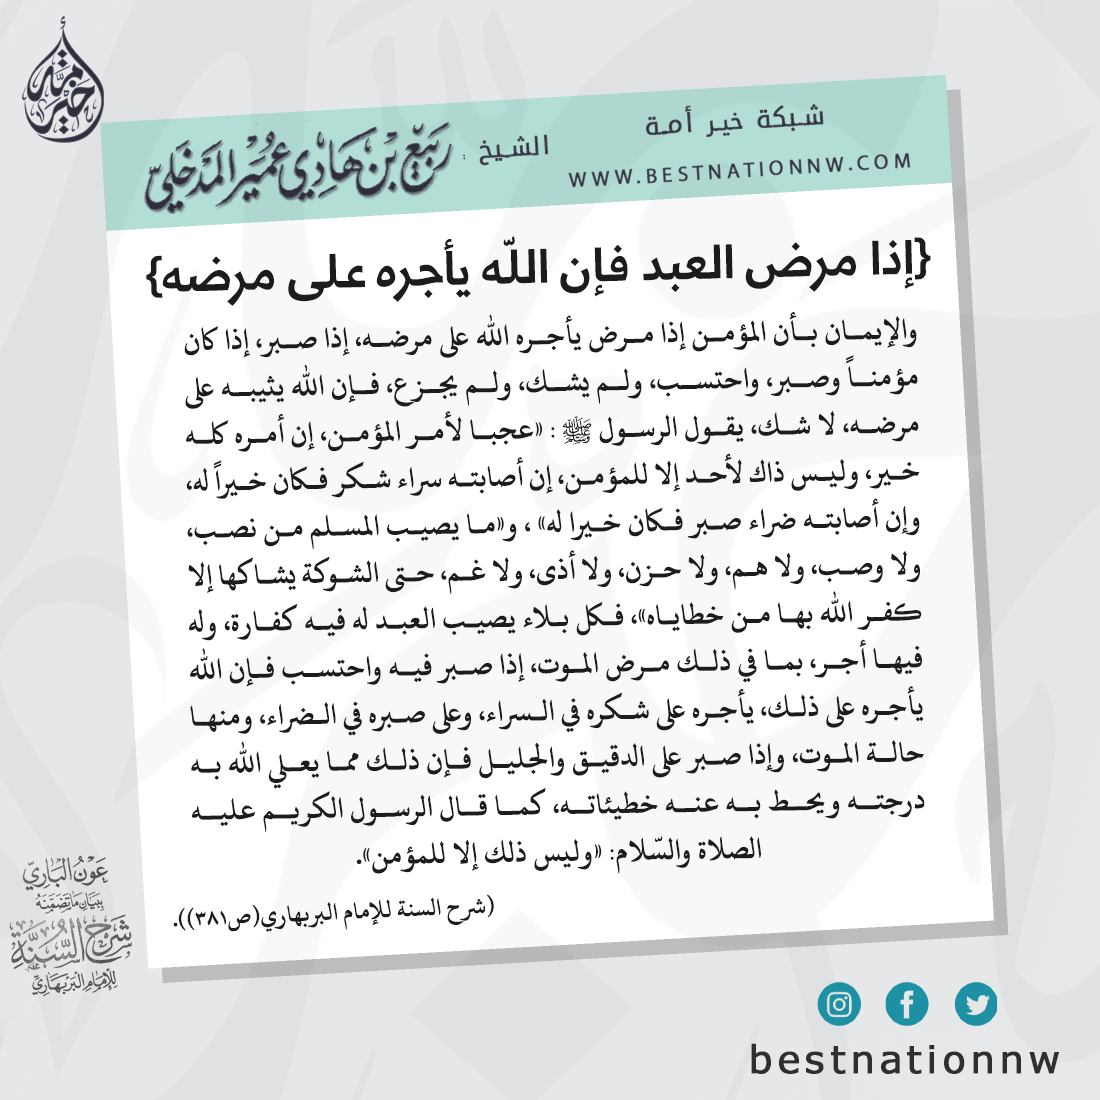 أمة
خير
شبكة خير أمة
WWW.BESTNATIONNW.COM
الشيخ :
ربيع بن هادي عمير المدخلي
{إذا مرض العبد فإن الله يأجره على مرضه}
والإيمان بأن المؤمن إذا مرض يأجره الله على مرضه، إذا صبر، إذا كان
مؤمناً وصبر، واحتسب، ولم يشك، ولم يجزع، فإن الله يثيبه على
مرضه، لا شك، يقول الرسول ﷺ : «عجبا لأمر المؤمن، إن أمره كله
خير، وليس ذاك لأحد إلا للمؤمن، إن أصابته سراء شكر فكان خيراً له،
وإن أصابته ضراء صبر فكان خيرا له» ، و«ما يصيب المسلم من نصب،
ولا وصب، ولا هم، ولا حزن، ولا أذى، ولا غم، حتى الشوكة يشاكها إلا
كفر الله بها من خطاياه»، فكل بلاء يصيب العبد له فيه كفارة، وله
فيها أجر، بما في ذلك مرض الموت، إذا صبر فيه واحتسب فإن الله
يأجره على ذلك، يأجره على شكره في السراء، وعلى صبره في الضراء، ومنها
حالة الموت، وإذا صبر على الدقيق والجليل فإن ذلك مما يعلي الله به
درجته ويحط به عنه خطيئاته، كما قال الرسول الكريم عليه
الصلاة والسّلام: «وليس ذلك إلا للمؤمن».
(شرح السنة للإمام البربهاري(ص٣٨١)).
عَوْنُ البَارِيّ
بِبَيَانِ مَا تَضَمَّنَهُ
شَرْحُ السُّنَّةِ
لِلْإِمَامِ البَرْبَهَارِيِّ
bestnationnw